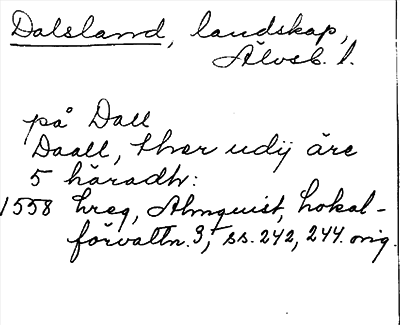 Dalsland, landskap,
Älvsb. l.
på Dall
Daall, ther udij äre
5 häradh:
1558 hreg, Almquist, Lokal-
förvaltn. 3, ss. 242, 244. orig.